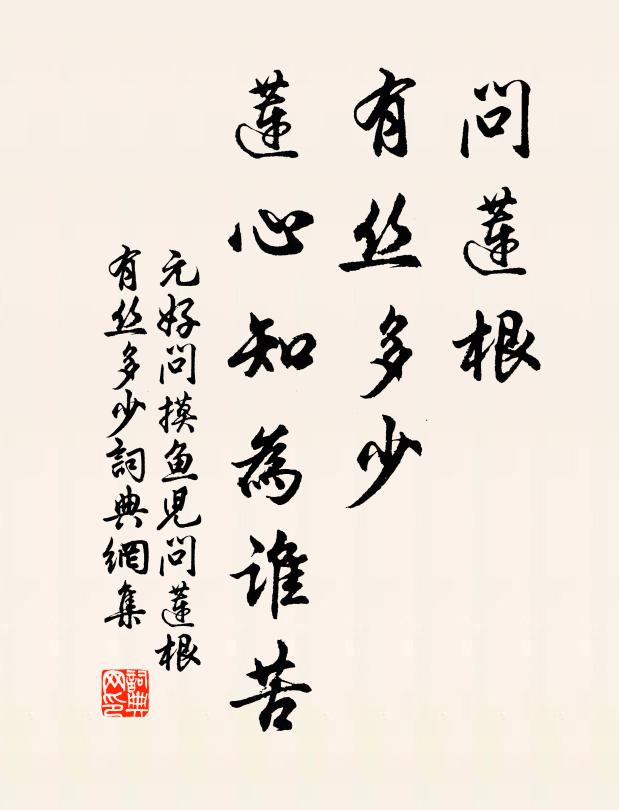 问莲根
有丝多少
莲心知為谁苦
元好问摸鱼児问莲根
有丝多少詞典網集
詞典网印